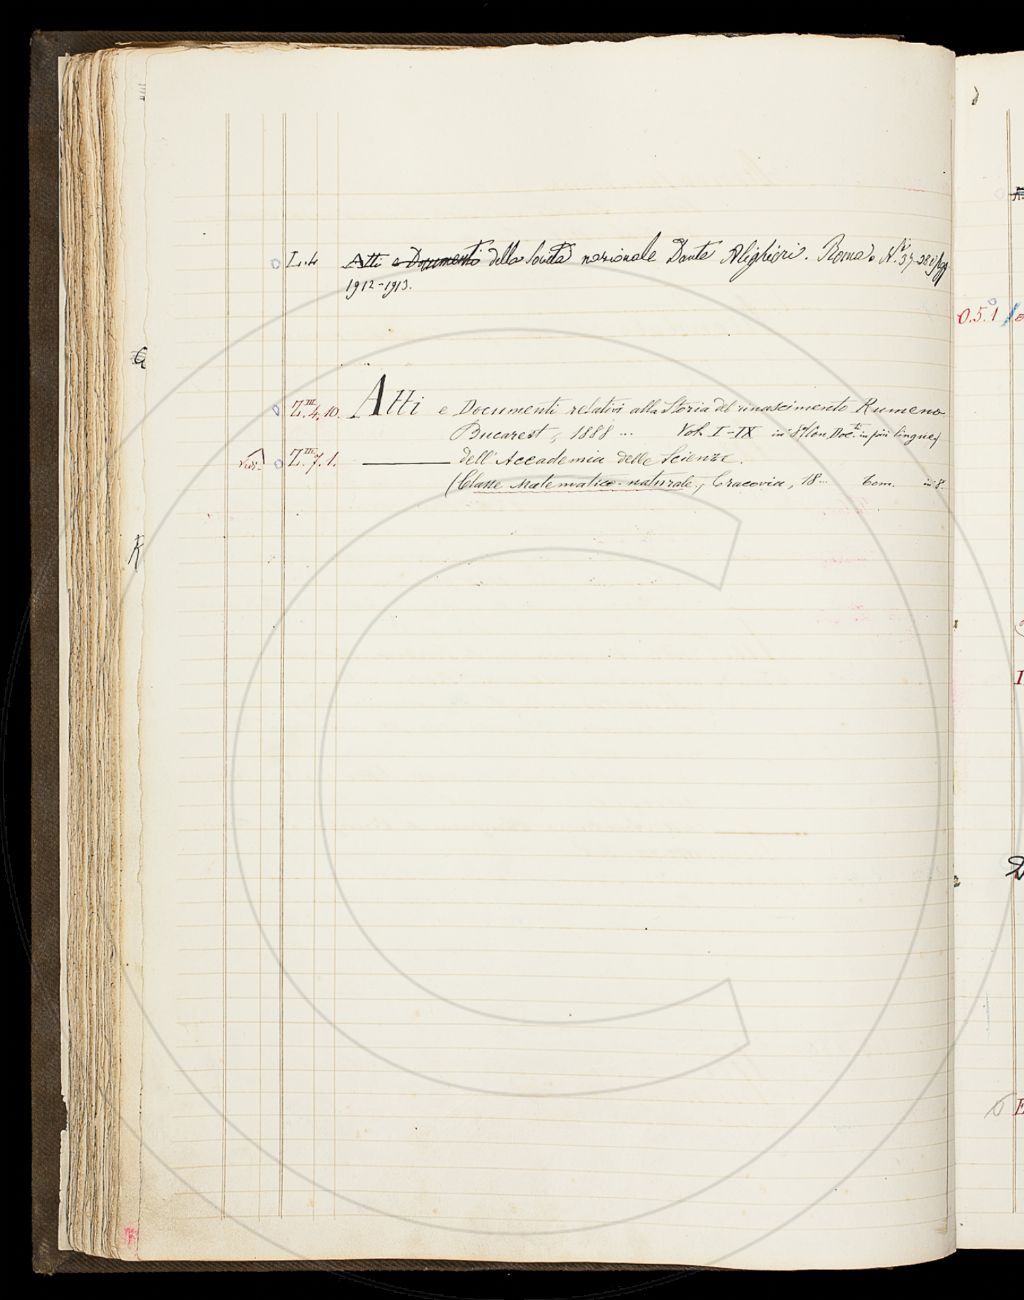 L.4 Atti e Documenti della Società nazionale Dante Alighieri. Roma N.i 37-38
1912-1913.
Z.III.4.10. Atti e Documenti relativi alla Storia del rinascimento Rumeno
Bucarest, 1888 ... Vol. I-IX in più lingue)
Z.III.7.1. ——— dell'Accademia delle Scienze.
(Classe Matematico-naturale, Cracovia, 18... tom. in 8.
O.5.1